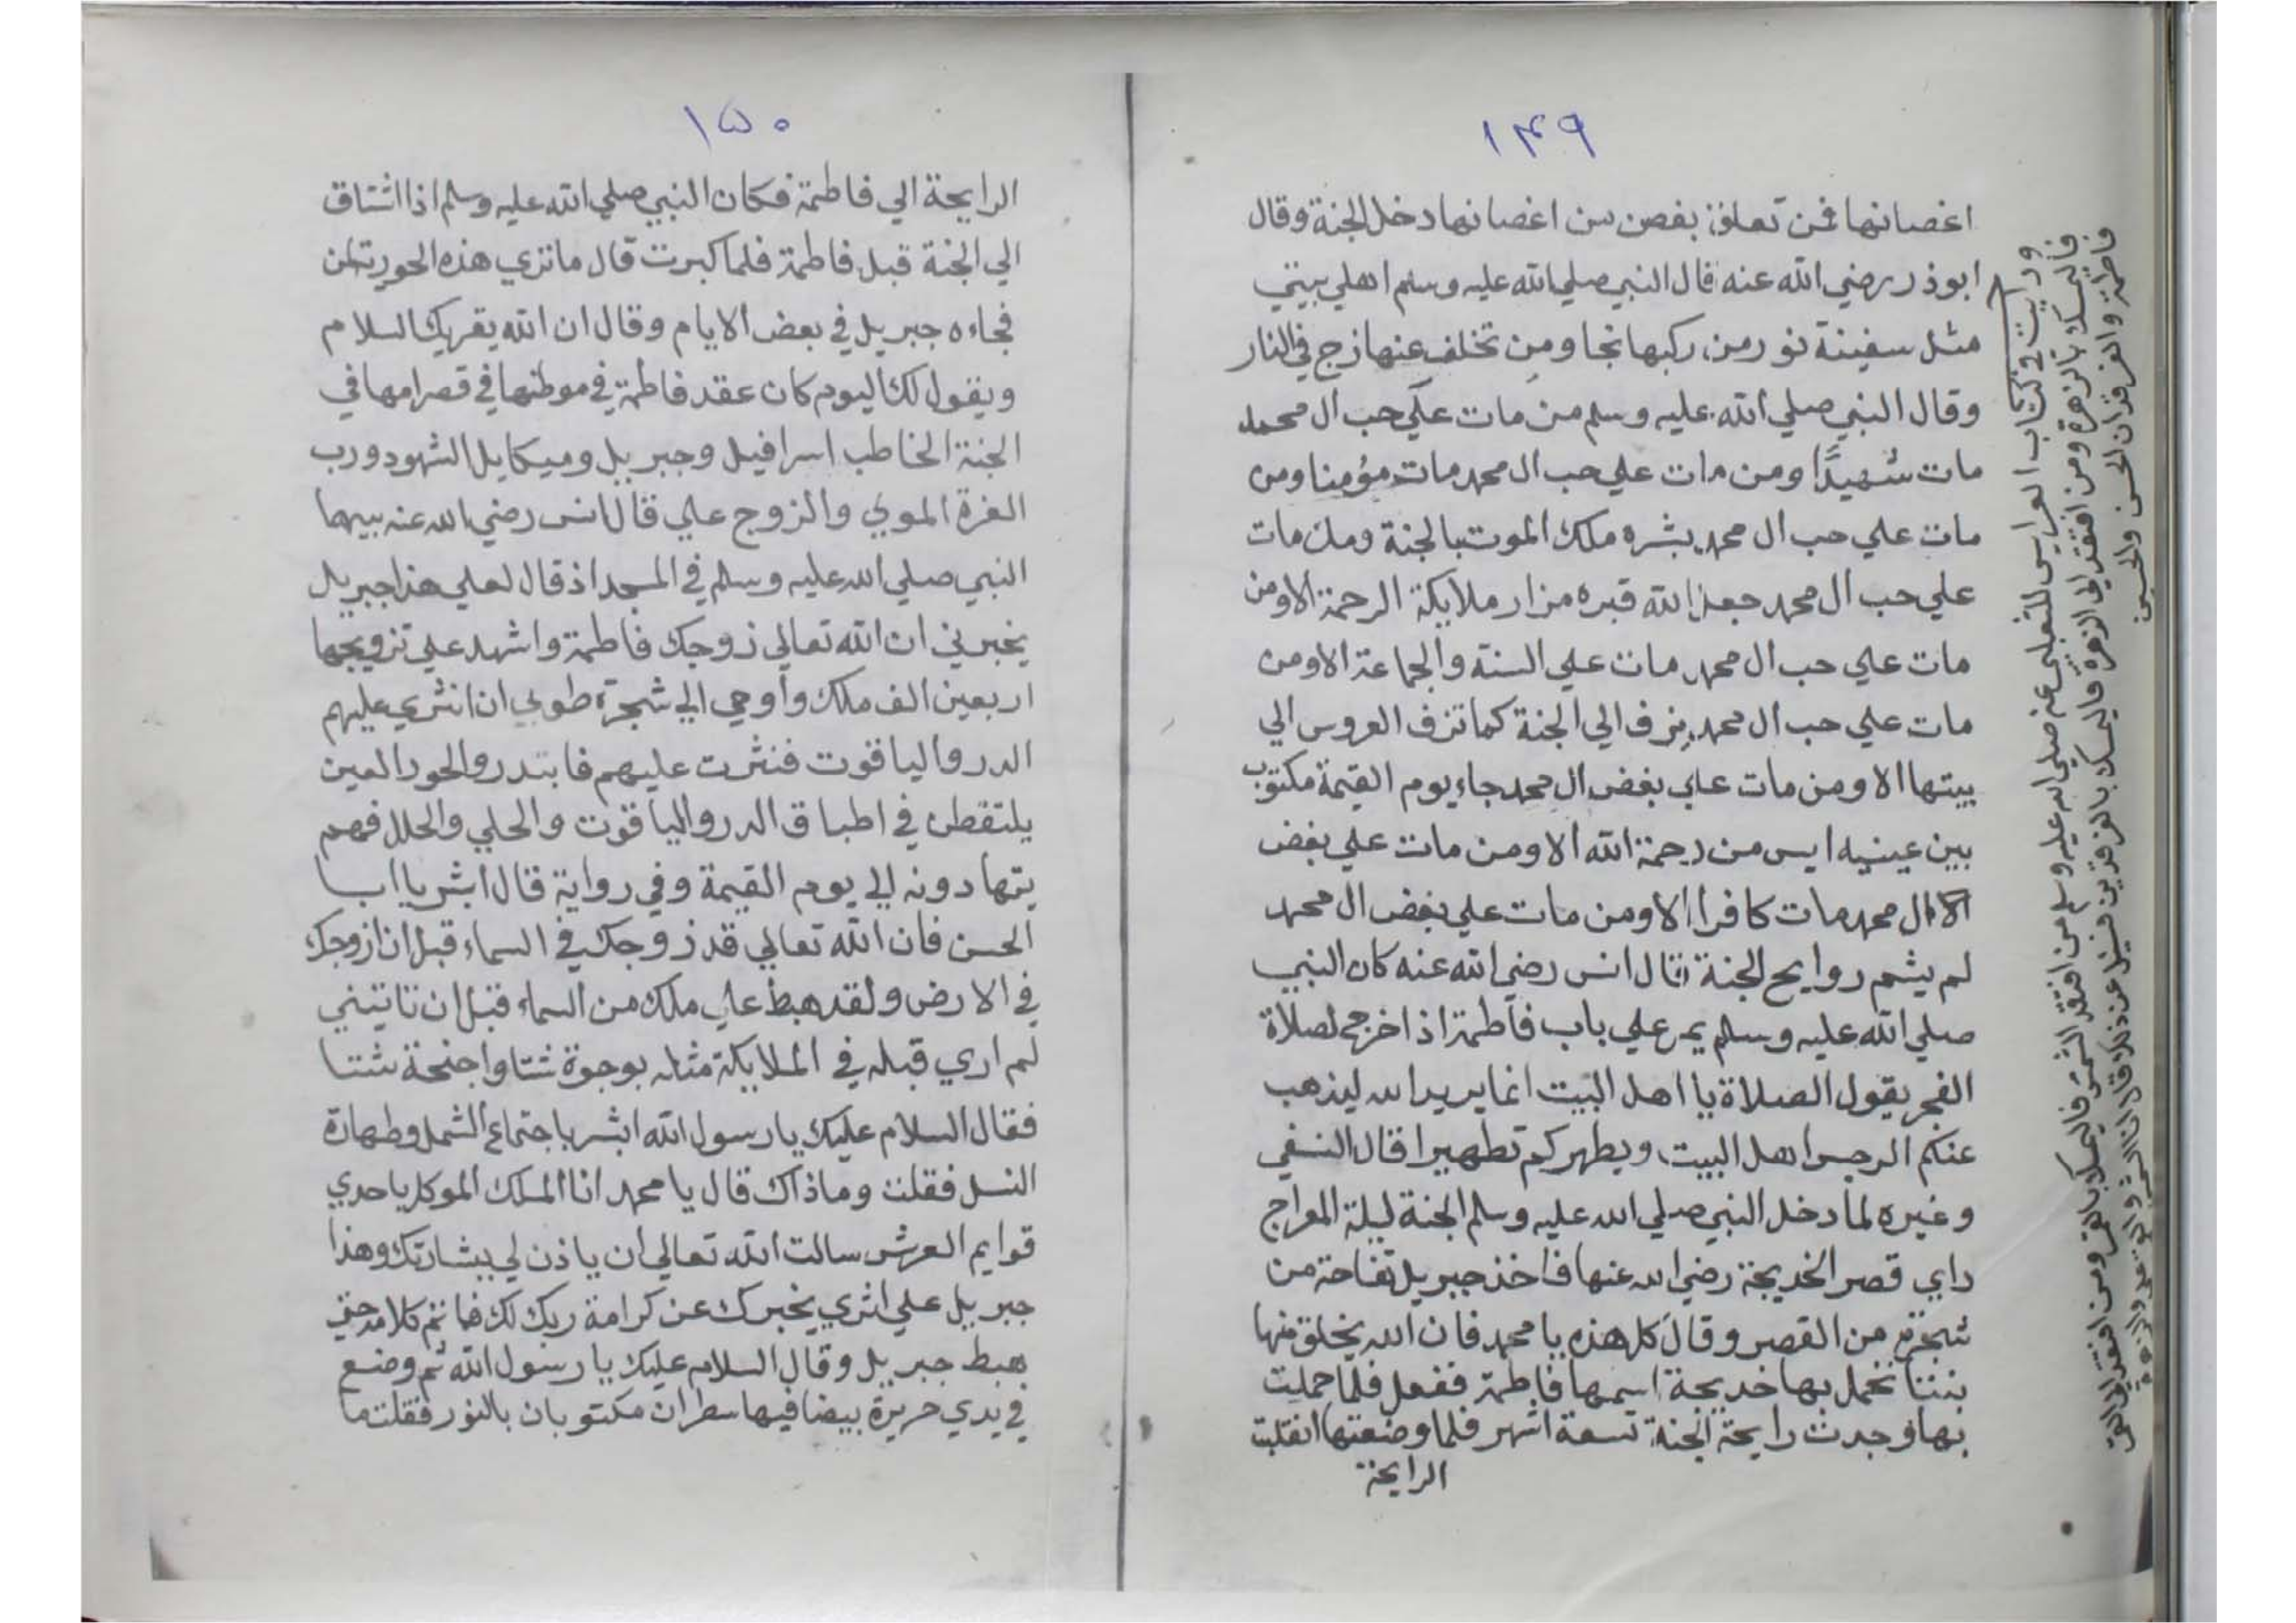 ١٤٩
اغصانها فمن تعلق بغصن من اغصانها دخل الجنة وقال
ابوذر رضي الله عنه قال النبي صلي الله عليه وسلم اهلي بيتي
مثل سفينة نور من ركبها نجا ومن تخلف عنها زج في النار
وقال النبي صلي الله عليه وسلم من مات علي حب ال محمد
مات شهيدًا ومن مات علي حب ال محمد مات مؤمنا ومن
مات علي حب ال محمد بشره ملك الموت بالجنة ومن مات
علي حب ال محمد جعل الله قبره مزار ملايكة الرحمة الا ومن
مات علي حب ال محمد مات علي السنة والجماعة الا ومن
مات علي حب ال محمد يزف الي الجنة كما تزف العروس الي
بيتها الا ومن مات علي بغض ال محمد جاء يوم القيمة مكتوب
بين عينيه ايس من رحمة الله الا ومن مات علي بغض
ال محمد مات كافرا الا ومن مات علي بغض ال محمد
لم يشم روايح الجنة قال انس رضي الله عنه كان النبي
صلي الله عليه وسلم يمر علي باب فاطمة اذا خرج لصلاة
الفجر يقول الصلاة يا اهل البيت انما يريد الله ليذهب
عنكم الرجس اهل البيت ويطهركم تطهيرا قال النسفي
وغيره لما دخل النبي صلي الله عليه وسلم الجنة ليلة المعراج
راي قصر الخديجة رضي الله عنها فاخذ جبريل تفاحة من
شجرة من القصر وقال كل هذه يا محمد فان الله يخلق منها
بنتا تحمل بها خديجة اسمها فاطمة ففعل فلما حملت
بها وجدت رايحة الجنة تسعة اشهر فلما وضعتها انقلبت
الرايحة
ورايت في كتاب العرايس للثعلبي عنه صلي الله عليه وسلم من افتقد الشمس فاليمسك بالقمر ومن افتقد القمر
فاليمسك بالزهرة ومن افتقد الزهرة فاليمسك بالفرقدين فسيل عن ذلك قال انا الشمس وعلي القمر والزهرة
فاطمة والفرقدان الحسن والحسين
١٥٠
الرايحة الي فاطمة فكان النبي صلي الله عليه وسلم اذا اشتاق
الي الجنة قبل فاطمة فلما كبرت قال ما تري هذه الحورية لمن
فجاءه جبريل في بعض الايام وقال ان الله يقريك السلام
ويقول لك اليوم كان عقد فاطمة في موطنها في قصر امها في
الجنة الخاطب اسرافيل وجبريل وميكايل الشهود ورب
العزة الموبي والزوج علي قال انس رضي الله عنه بيهما
النبي صلي الله عليه وسلم في المسجد اذ قال لعلي هذا جبريل
يخبرني ان الله تعالي زوجك فاطمة واشهد علي تزويجها
اربعين الف ملك وأوحي الي شجرة طوبي ان انثري عليهم
الدر واليا قوت فنثرت عليهم فابتدر والحور العين
يلتقطن في اطباق الدر واليا قوت والحلي والحلل فهم
يتهادونه الي يوم القيمة وفي رواية قال ابشر يا ابا
الحسن فان الله تعالي قد زوجك في السماء قبل ان ازوجك
في الارض ولقد هبط علي ملك من السماء قبل ان تاتيني
لم اري قبله في الملايكة مثله بوجوة شتا واجنحة شتا
فقال السلام عليك يا رسول الله ابشر باجتماع الشمل وطهارة
النسل فقلت وما ذاك قال يا محمد انا الملك الموكل باحدي
قوايم العرش سالت الله تعالي ان ياذن لي ببشارتك وهذا
جبريل علي اثري يخبرك عن كرامة ربك لك فما تم كلامه حتي
هبط جبريل وقال السلام عليك يا رسول الله ثم وضع
في يدي حريرة بيضا فيها سطران مكتوبان بالنور فقلت ما